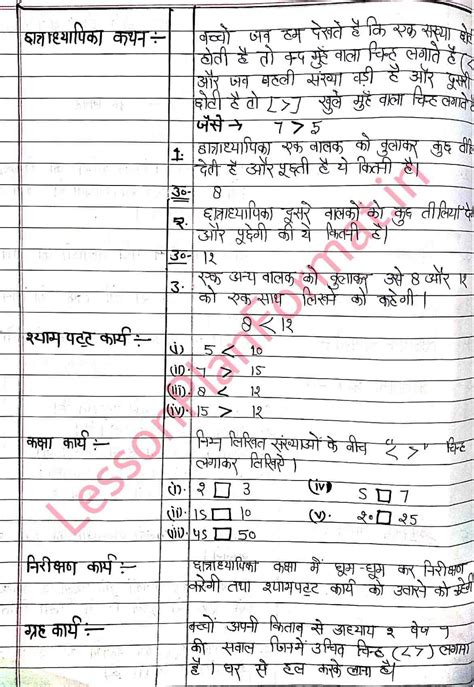 छात्राध्यापिका कथन :- बच्चों जब हम देखते है कि एक संख्या
होती है तो बन्द मुँह वाला चिन्ह लगाते है (<
और जब पहली संख्या बड़ी है और दूसरी
छोटी है तो [>] खुले मुँह वाला चिन्ह लगाते
जैसे → 7 > 5
1. छात्राध्यापिका एक बालक को बुलाकर कुछ
देती है और पूछती है ये कितनी है।
उ०- 8
2. छात्राध्यापिका दूसरे बालको को कुछ तीलियाँ
और पूछेगी की ये कितनी है।
उ०- १२
3. एक अन्य बालक को बुलाकर उसे 8 और १२
को एक साथ लिखने को कहेगी।
8 < १२
श्याम पट्ट कार्य :-
(i) 5 < 10
(ii) 7 > 15
(iii) 8 < 12
(iv) 15 > 12
कक्षा कार्य :- निम्न लिखित संख्याओं के बीच "< >" चिन्ह
लगाकर लिखिए।
(i). २ □ 3 (iv) 5 □ 7
(ii). 15 □ 10 (v). २० □ २5
(iii) 45 □ 50
निरीक्षण कार्य :- छात्राध्यापिका कक्षा में घूम-घूम कर निरीक्षण
करेगी तथा श्यामपट्ट कार्य को उतारने को कहेगी
ग्रह कार्य :- बच्चों अपनी किताब से अध्याय २ पेज 7
की सवाल जिनमें उचित चिन्ह (< >) लगाना
है। घर से हल करके लाना है।
LessonPlanFormat.in